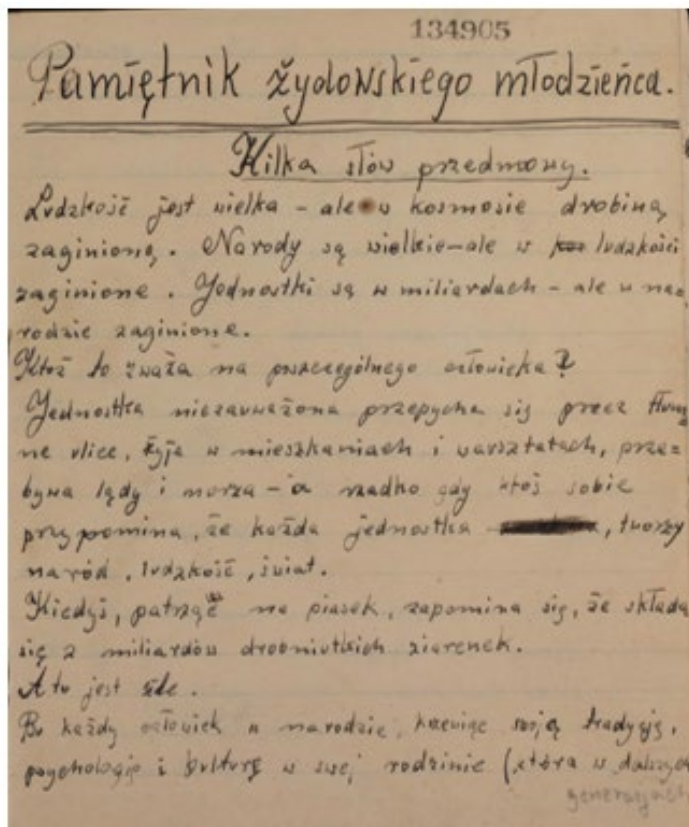 134905
Pamiętnik żydowskiego młodzieńca.
Kilka słów przedmowy.
Ludzkość jest wielka – ale w kosmosie drobiną
zaginioną. Narody są wielkie – ale w ludzkości
zaginione. Jednostki są w miliardach – ale w na=
rodzie zaginione.
Któż to zważa na poszczególnego człowieka?
Jednostka niezauważona przepycha się przez tłum
ne ulice, żyje w mieszkaniach i warsztatach, prze=
bywa lądy i morza – a rzadko gdy ktoś sobie
przypomina, że każda jednostka, tworzy
naród, ludzkość, świat.
Kiedyś, patrząc na piasek, zapomina się, że składa
się z miliardów drobniutkich ziarenek.
A to jest źle.
Bo każdy człowiek w narodzie, krzewiąc swoją tradycję,
psychologię i kulturę w swej rodzinie (która w dalszych
generacjach